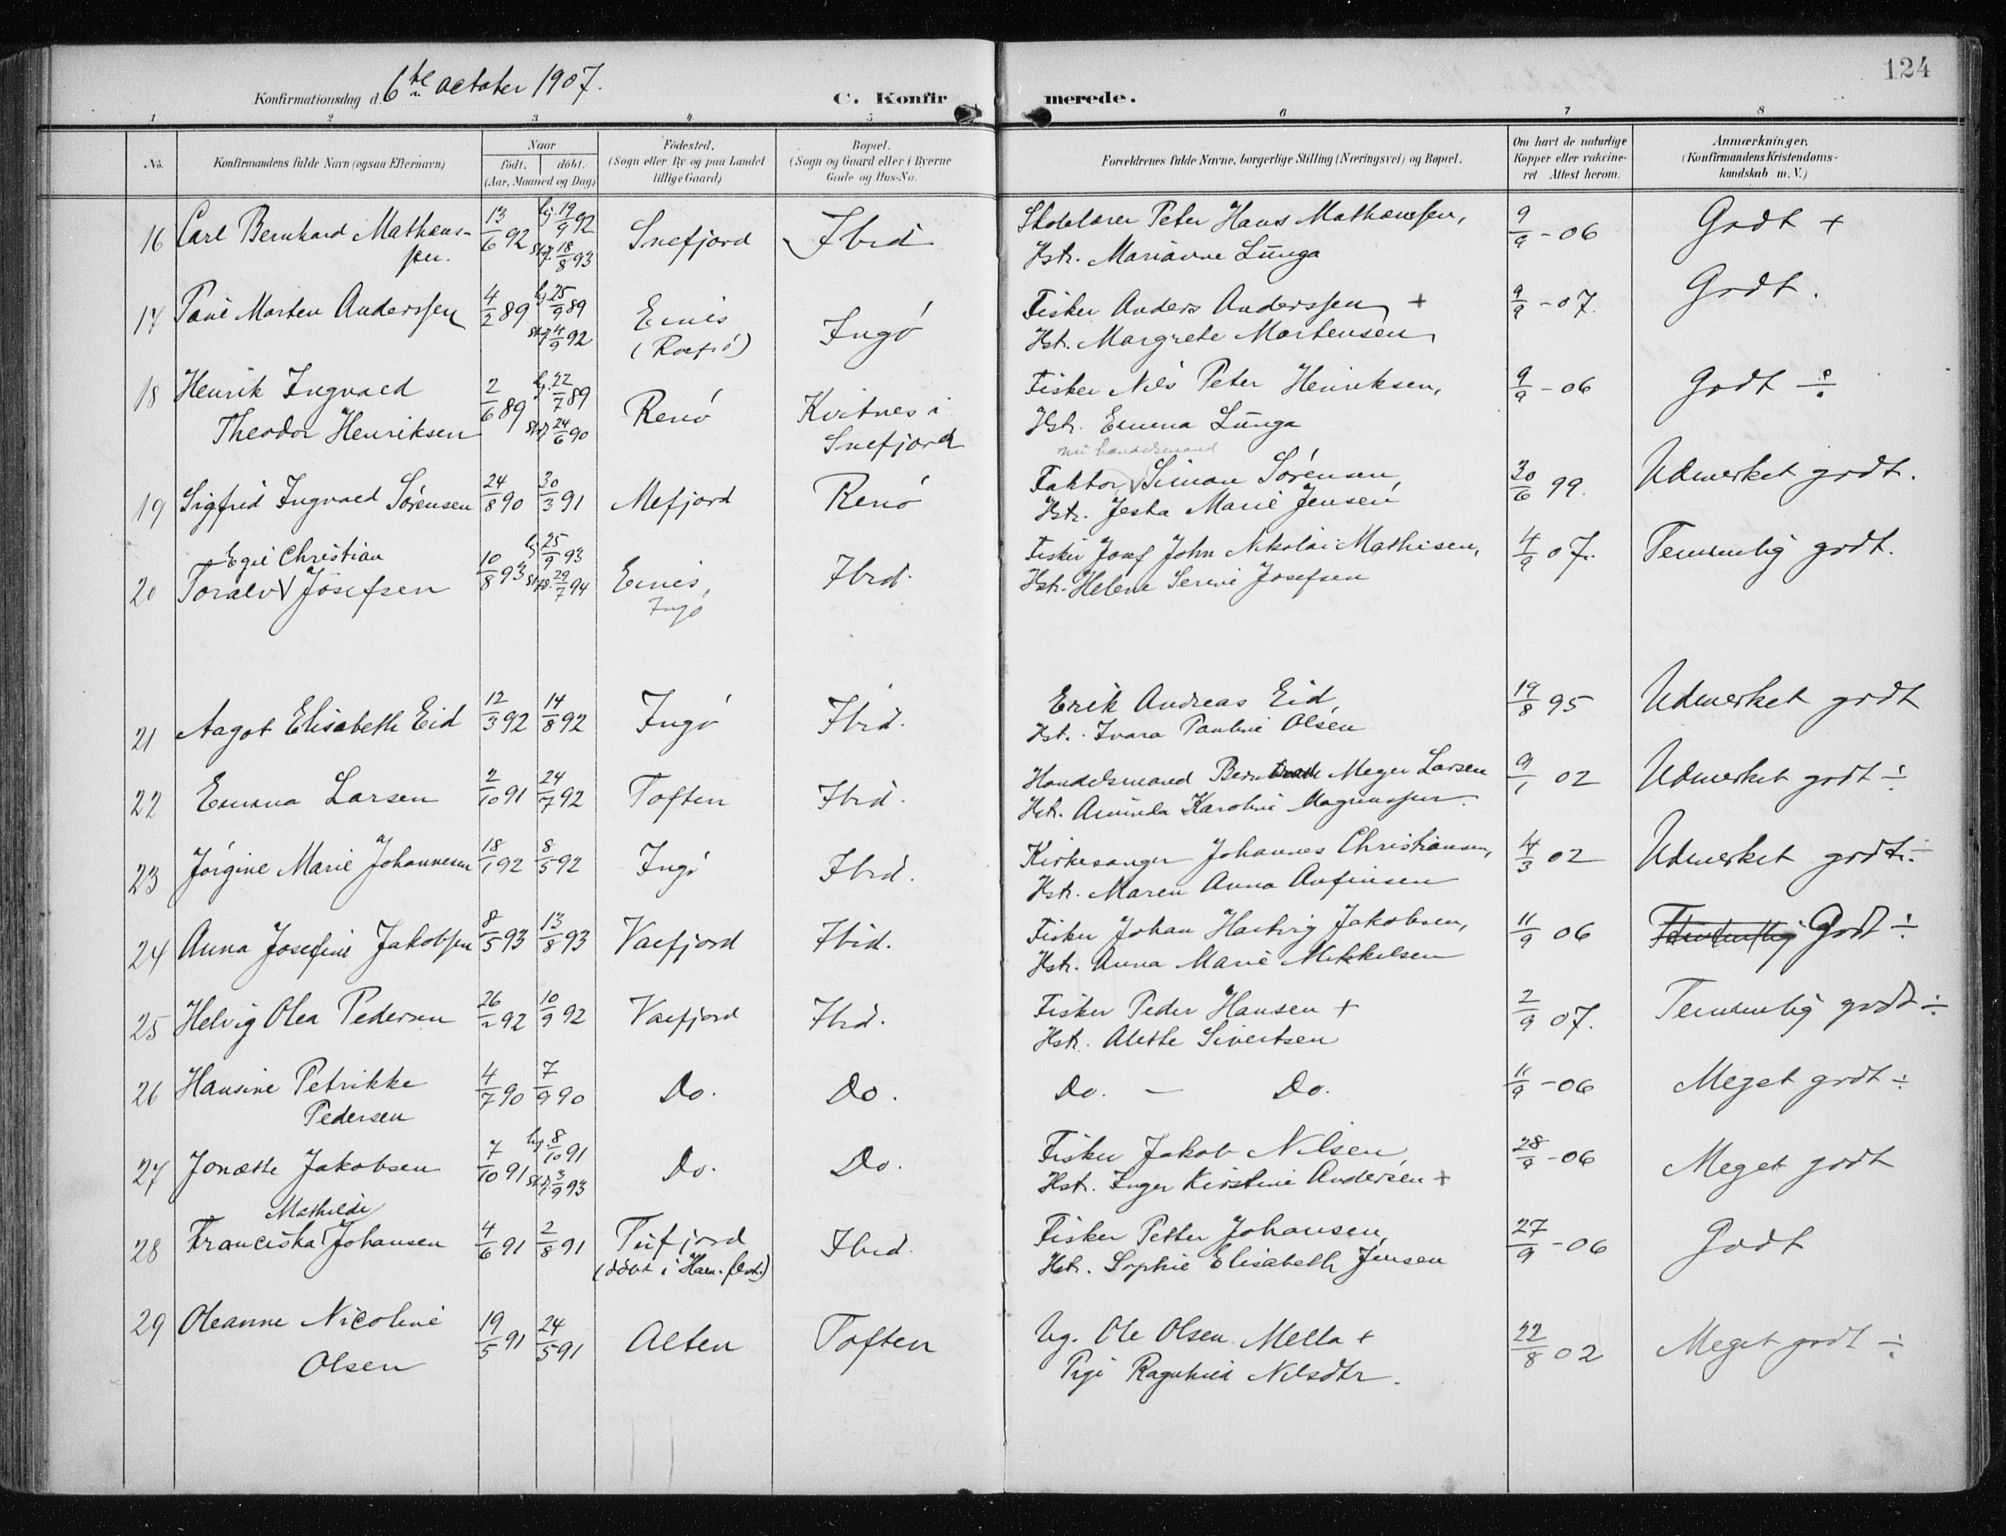 124
Konfirmationsdag d. 6te october 1907.
C. Konfirmerede.
1 2 3 4 5 6 7 8
No.
Konfirmandens fulde Navn (ogsaa Efternavn)
Naar
født. døbt.
(Aar, Maaned og Dag)
Fødested.
(Sogn eller By og paa Landet
tillige Gaard)
Bopæl.
(Sogn og Gaard eller i Byerne
Gade og Hus-No.
Forældrenes fulde Navne, borgerlige Stilling (Næringsvei) og Bopæl.
Om havt de naturlige
Kopper eller vakcine-
ret Attest herom.
Anmærkninger,
(Konfirmandens Kristendoms-
kundskab m. V.)
16 Carl Bernhard Mathæus- 13/6 92 hj. 19/9 92 Snefjord Ibid Skolelærer Peter Hans Mathæussen, 9/9 - 06 Godt +
sen. 18/8 93 Hstr. Marianne Lunga
17 Paul Morten Anderssen 4/2 89 hj. 25/9 89 Ingø Fisker Anders Anderssen + 9/9 - 07. Godt.
4/9 92 Hst. Margrete Mortensen
18 Henrik Ingvald 2/6 89 hj. 22/7 89 Renø Kvitnes i Fisker Nils Peter Henriksen, 9/9 - 06 Godt ÷
Theodor Henriksen 24/6 90 Snefjord Hst. Emma Lunga
nu handelsmand
19 Sigfrid Ingvald Sørensen 24/8 90 30/3 91 Mefjord Renø Faktor Simon Sørensen, 30/6 99. Udmerket godt.
Hstr. Marie Jensen
Egil Christian
20 Toralv Josefsen 10/8 93 hj. 25/9 93 Ibid. Fisker Josef John Nikolai Mathisen, 4/9 07. Temmelig godt.
29/7 94 Ingø Hst. Helene Serine Josefsen
21 Aagot Elisabeth Eid 12/3 92 14/8 92 Ingø Ibid. Erik Andreas Eid, 19/8 95 Udmerket godt
Hst. Ivara Pauline Olsen
22 Emma Larsen 2/10 91 24/7 92 Toften Ibid. Handelsmand Meyer Larsen 9/1 02 Udmerket godt ÷
Hst. Aminda Karoline Magnussen.
23 Jørgine Marie Johannesen 18/1 92 8/5 92 Ingø Ibid. Kirkesanger Johannes Christiansen, 4/3 02 Udmerket godt ÷
Hst. Maren Anna Anfinsen
24 Anna Josefine Jakobsen 8/5 93 13/8 93 Valfjord Ibid. Fisker Johan Hartvig Jakobsen, 11/9 06 Temmelig Godt ÷
Hst. Anna Marie Mikkelsen
25 Helvig Olea Pedersen 26/2 92 10/9 92 Valfjord Ibid. Fisker Peder Hansen + 2/9 07. Temmelig godt ÷
Hst. Alette Sivertsen
26 Hansine Petrikke 4/7 90 7/9 90 Do. Do. Do. — Do. 11/9 - 06 Meget godt ÷
Pedersen
27 Jonette Jakobsen 7/10 91 hj. 8/10 91 Do. Do. Fisker Jakob Nilsen, 28/9 - 06 Meget godt
3/9 93 Hst. Inger Kirstine Andersen +
Mathilde
28 Franciska Johansen 4/6 91 2/8 91 Tufjord Ibid. Fisker Petter Johansen, 27/9 - 06 Godt
(døbt i Ham. fest.) Hst. Sophie Elisabeth Jensen
29 Oleanne Nicoline 19/5 91 24/5 91 Alten Toften Ug. Ole Olsen Mella + 22/8 02 Meget godt ÷
Olsen Pige Ragnhild Nilsdtr.